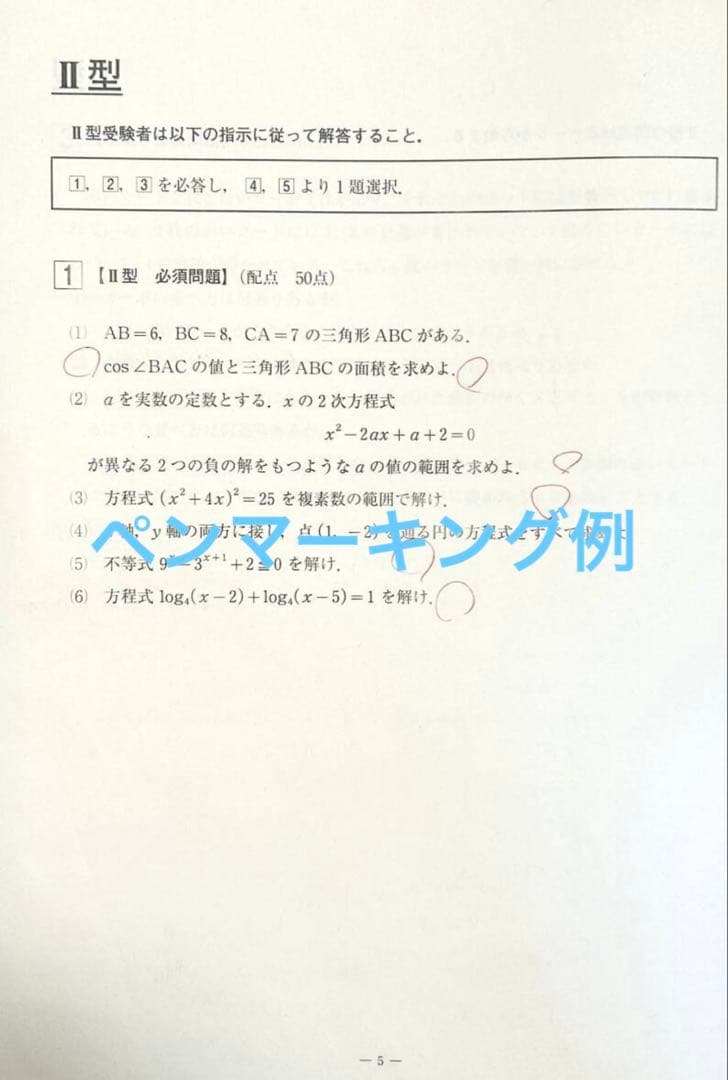 II型
II型受験者は以下の指示に従って解答すること．
1，2，3を必答し，4，5より1題選択．
1【II型 必須問題】（配点 50点）
(1) AB＝6，BC＝8，CA＝7の三角形ABCがある．
cos∠BACの値と三角形ABCの面積を求めよ．
(2) aを実数の定数とする．xの2次方程式
x²－2ax＋a＋2＝0
が異なる2つの負の解をもつようなaの値の範囲を求めよ．
(3) 方程式(x²＋4x)²＝25を複素数の範囲で解け．
(4) 軸，y軸の両方に接し，点(1，－2)を通る円の方程式をすべて
ペンマーキング例
(5) 不等式9ˣ－3ˣ⁺¹＋2≦0を解け．
(6) 方程式log₄(x－2)＋log₄(x－5)＝1を解け．
— 5 —